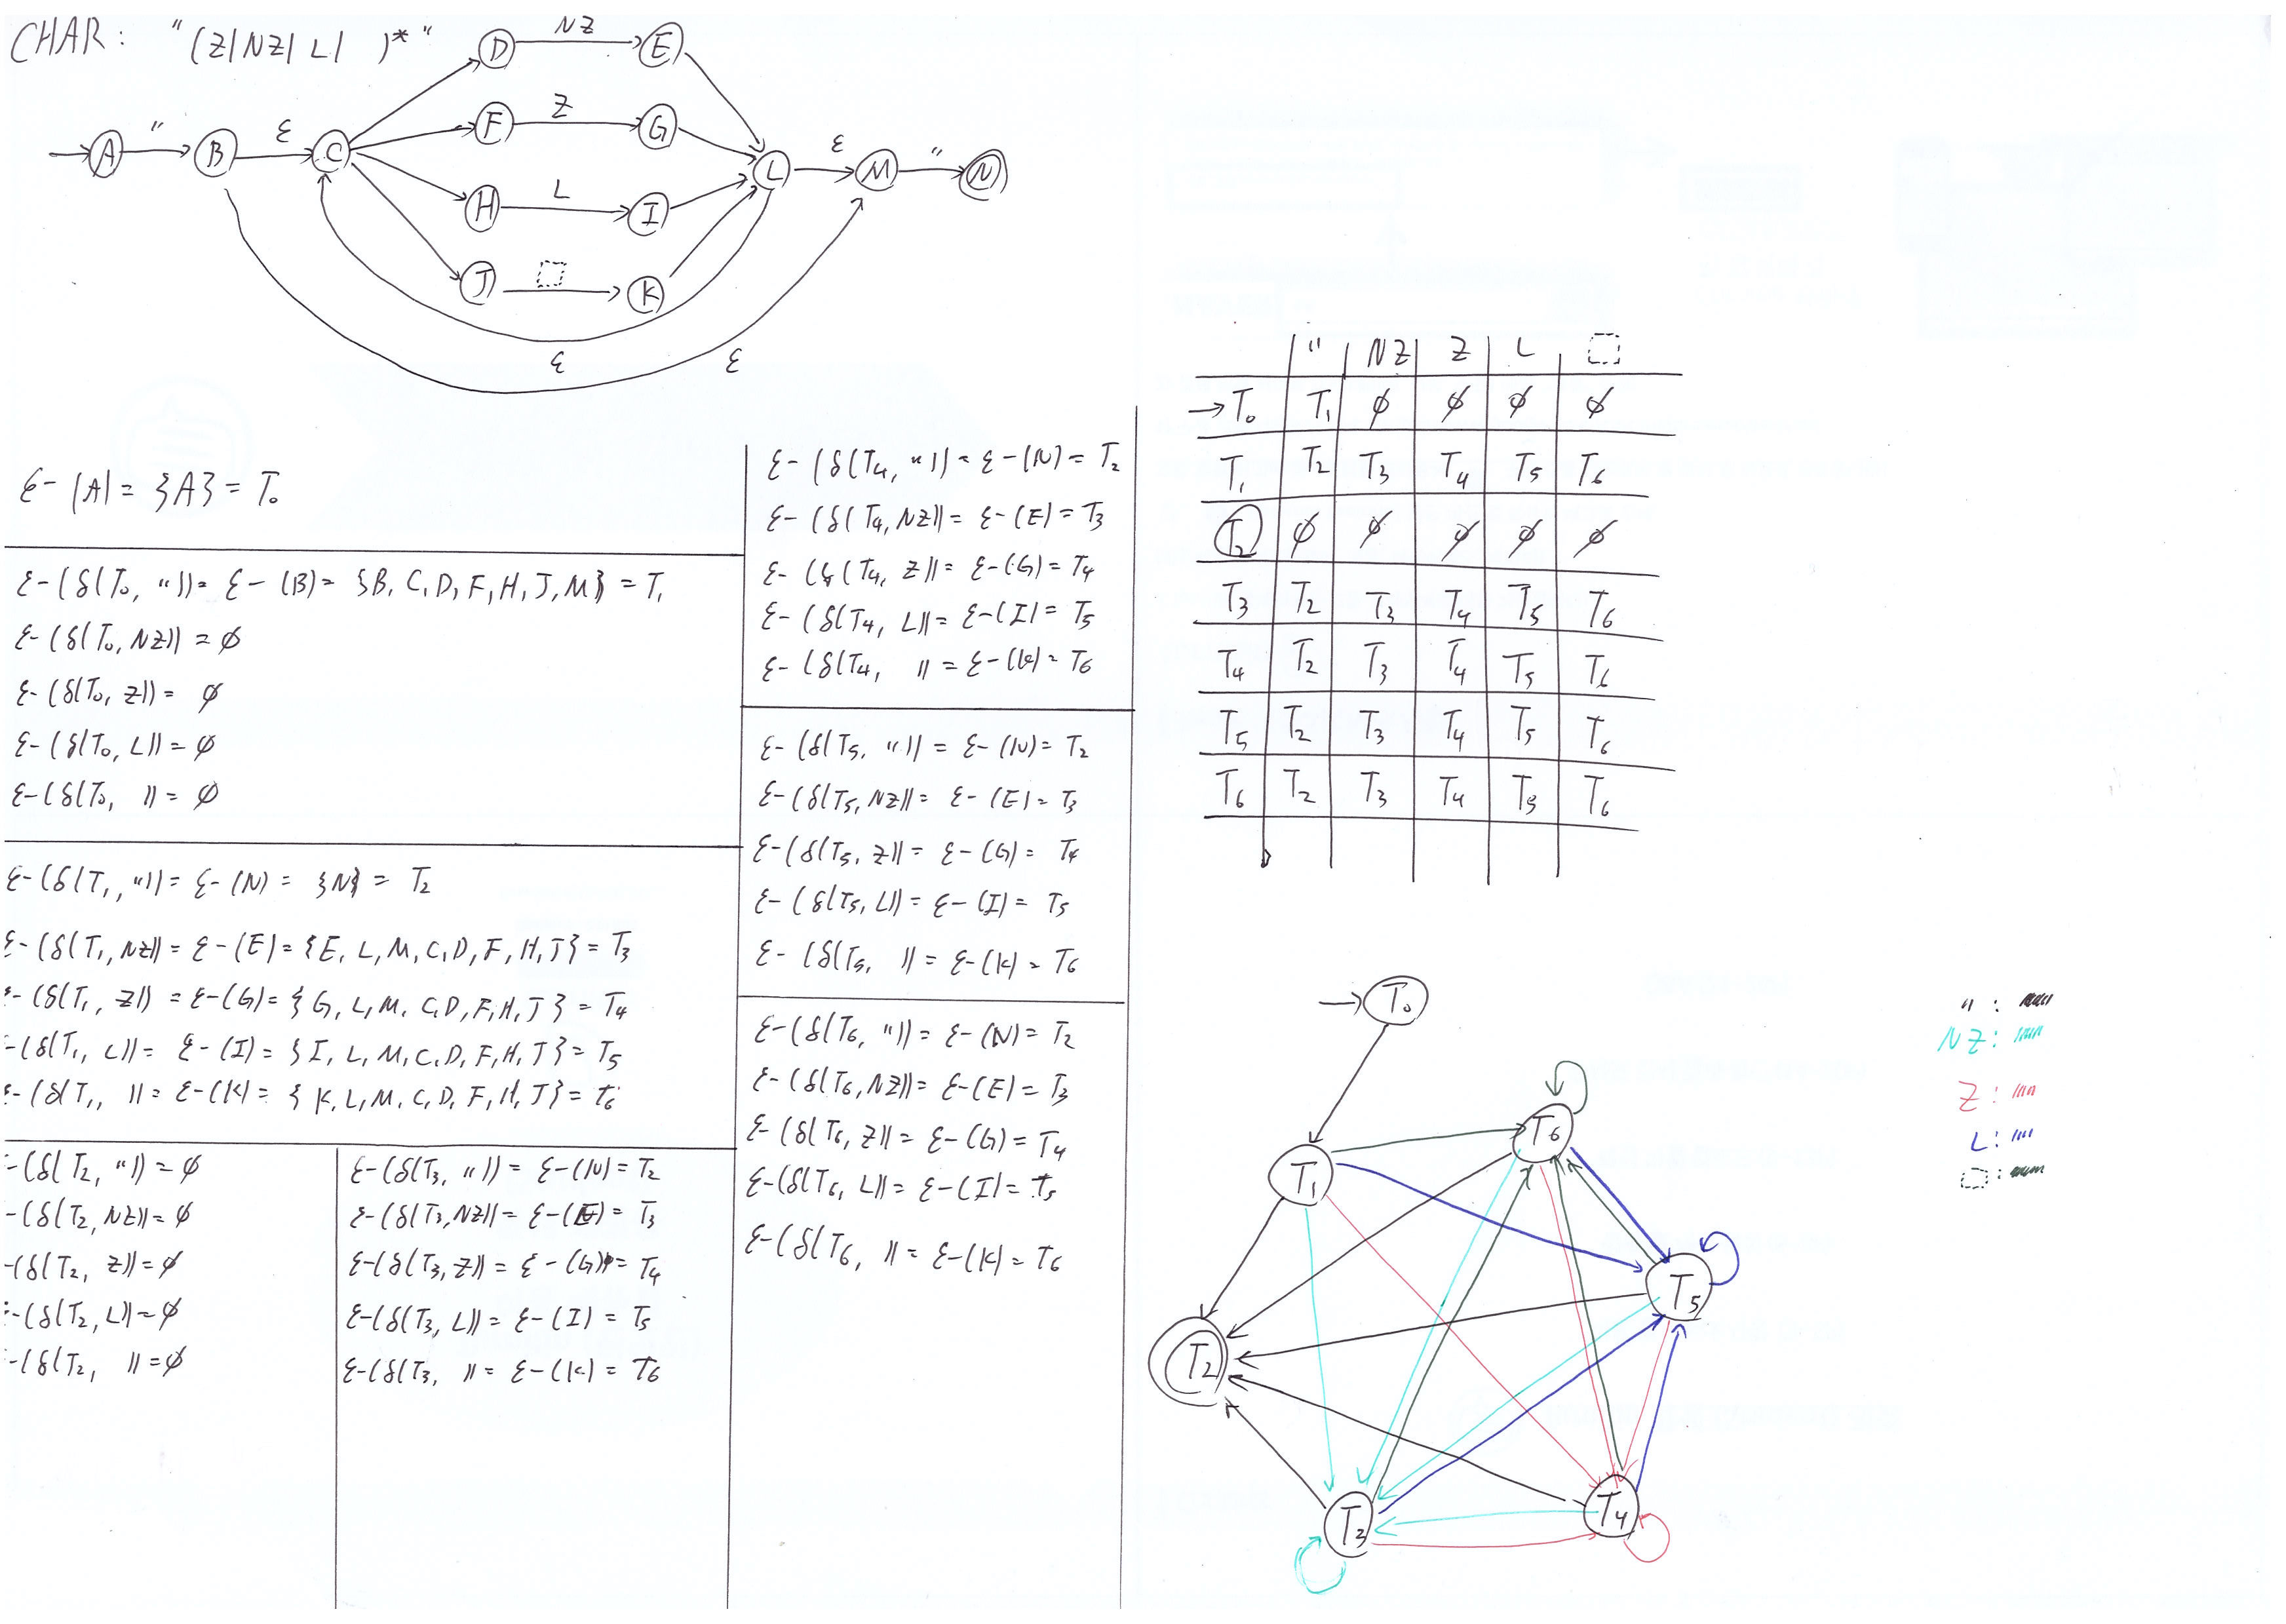 CHAR: "(Z|NZ|L| )*"
D NZ E
F Z G
A " B ε C L ε M " N
H L I
J K
ε ε
ε-(A) = {A} = T0
ε-(δ(T0, ")) = ε-(B) = {B, C, D, F, H, J, M} = T1
ε-(δ(T0, NZ)) = ∅
ε-(δ(T0, Z)) = ∅
ε-(δ(T0, L)) = ∅
ε-(δ(T0, )) = ∅
ε-(δ(T1, ")) = ε-(N) = {N} = T2
ε-(δ(T1, NZ)) = ε-(E) = {E, L, M, C, D, F, H, J} = T3
ε-(δ(T1, Z)) = ε-(G) = {G, L, M, C, D, F, H, J} = T4
ε-(δ(T1, L)) = ε-(I) = {I, L, M, C, D, F, H, J} = T5
ε-(δ(T1, )) = ε-(K) = {K, L, M, C, D, F, H, J} = T6
ε-(δ(T2, ")) = ∅
ε-(δ(T2, NZ)) = ∅
ε-(δ(T2, Z)) = ∅
ε-(δ(T2, L)) = ∅
ε-(δ(T2, )) = ∅
ε-(δ(T3, ")) = ε-(N) = T2
ε-(δ(T3, NZ)) = ε-(E) = T3
ε-(δ(T3, Z)) = ε-(G) = T4
ε-(δ(T3, L)) = ε-(I) = T5
ε-(δ(T3, )) = ε-(K) = T6
ε-(δ(T4, ")) = ε-(N) = T2
ε-(δ(T4, NZ)) = ε-(E) = T3
ε-(δ(T4, Z)) = ε-(G) = T4
ε-(δ(T4, L)) = ε-(I) = T5
ε-(δ(T4, )) = ε-(K) = T6
ε-(δ(T5, ")) = ε-(N) = T2
ε-(δ(T5, NZ)) = ε-(E) = T3
ε-(δ(T5, Z)) = ε-(G) = T4
ε-(δ(T5, L)) = ε-(I) = T5
ε-(δ(T5, )) = ε-(K) = T6
ε-(δ(T6, ")) = ε-(N) = T2
ε-(δ(T6, NZ)) = ε-(E) = T3
ε-(δ(T6, Z)) = ε-(G) = T4
ε-(δ(T6, L)) = ε-(I) = T5
ε-(δ(T6, )) = ε-(K) = T6
" NZ Z L
→T0 T1 ∅ ∅ ∅ ∅
T1 T2 T3 T4 T5 T6
T2 ∅ ∅ ∅ ∅ ∅
T3 T2 T3 T4 T5 T6
T4 T2 T3 T4 T5 T6
T5 T2 T3 T4 T5 T6
T6 T2 T3 T4 T5 T6
T0
T6
T1
T5
T2
T4
T3
" :
NZ:
Z:
L:
: